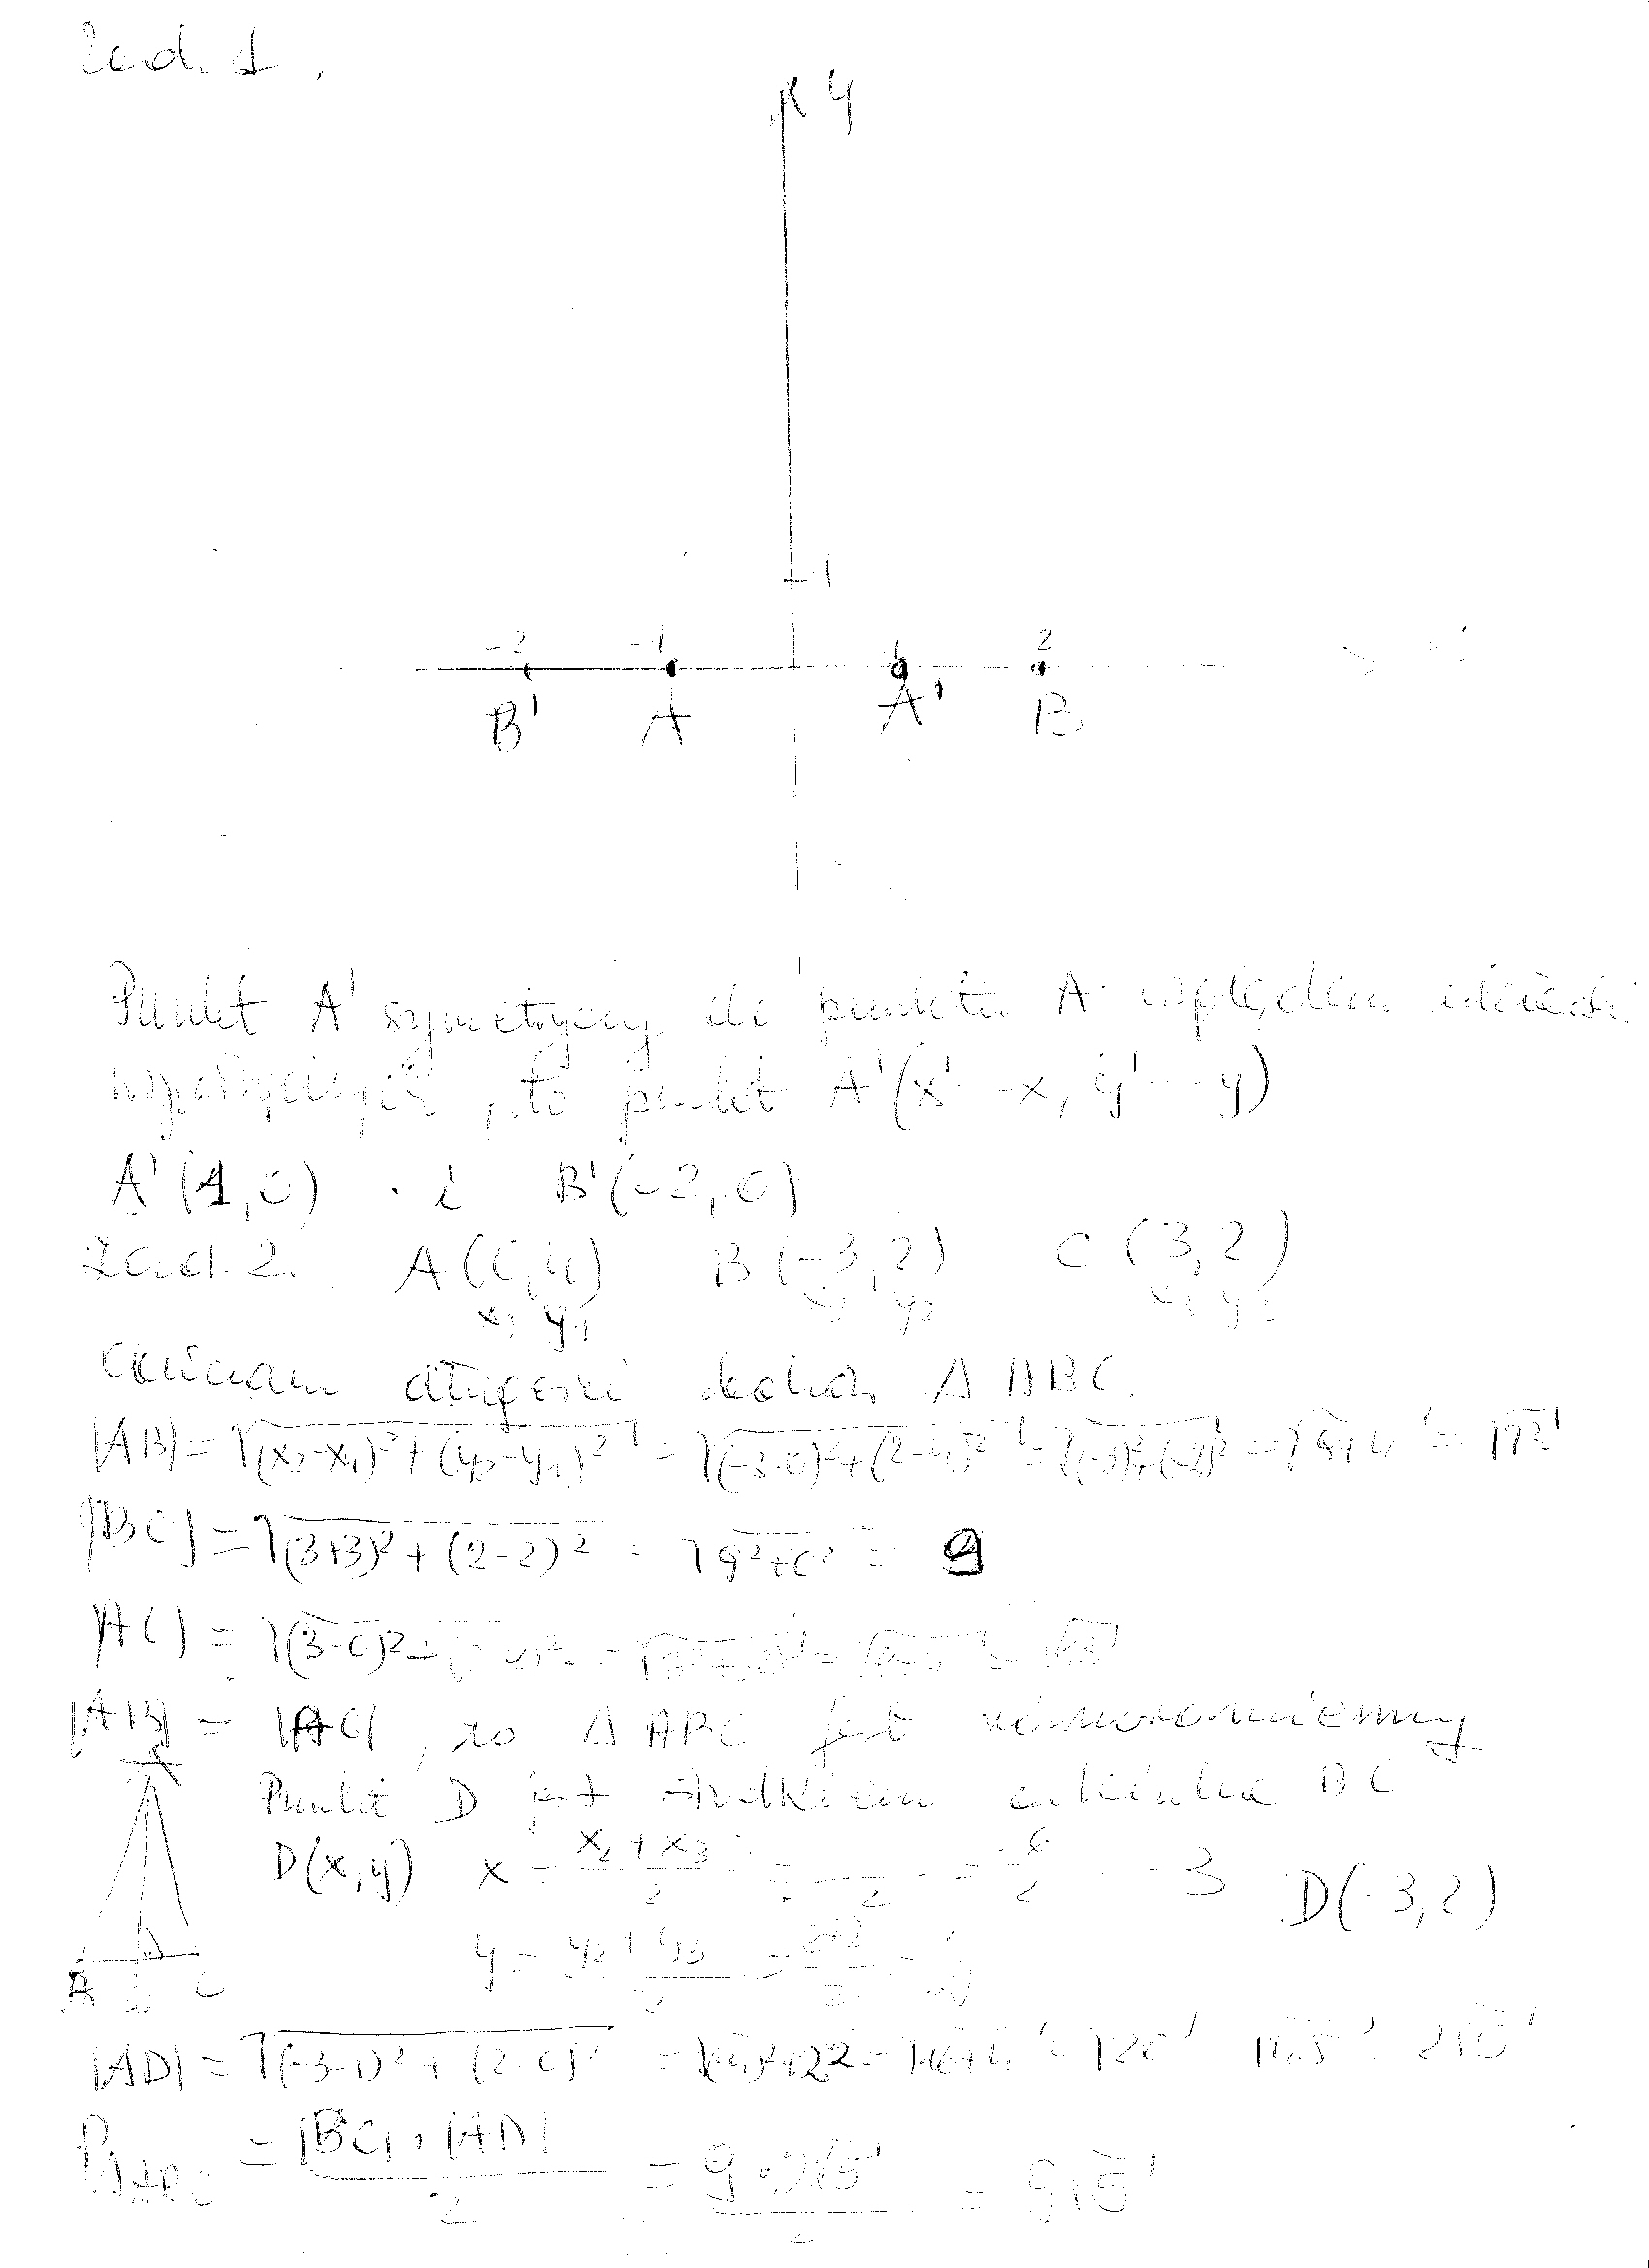 Zad. 1.
y
1
-2 -1 1 2
B' A A' B
Punkt A' symetryczny do punktu A względem
, to punkt A'(x'=-x, y'=-y)
A'(1,0) i B'(-2,0)
Zad. 2. A(0,4) B(-3,2) C(3,2)
x₁ y₁ x₂ y₂ x₃ y₃
długości boków Δ ABC.
|AB| = √(x₂-x₁)²+(y₂-y₁)² = √(-3-0)²+(2-4)² = √(-3)²+(-2)² = √9+4 = √13
|BC| = √(3+3)²+(2-2)² = √9²+0² = 9
|AC| = √(3-0)²+ = √13
|AB| = |AC|, to Δ ABC jest równoramienny
Punkt D jest środkiem odcinka BC
D(x,y) x = x₂+x₃/2 = -3 D(-3,2)
y = y₂+y₃/2 = 2+2/2 =
A D C
|AD| = √(-3-1)²+(2-0)² = √(-4)²+2² = √16+4 = √20 = √4·5 = 2√5
P = |BC|·|AD|/2 = 9·2√5/2 = 9√5